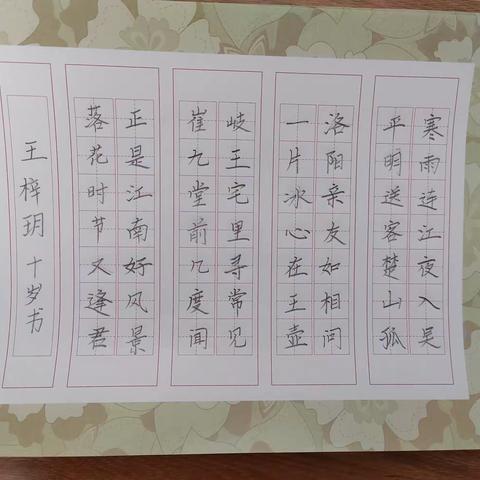 寒雨连江夜入吴
平明送客楚山孤
洛阳亲友如相问
一片冰心在王壶
岐王宅里寻常见
崔九堂前几度闻
正是江南好风景
落花时节又逢君
王梓玥 十岁书